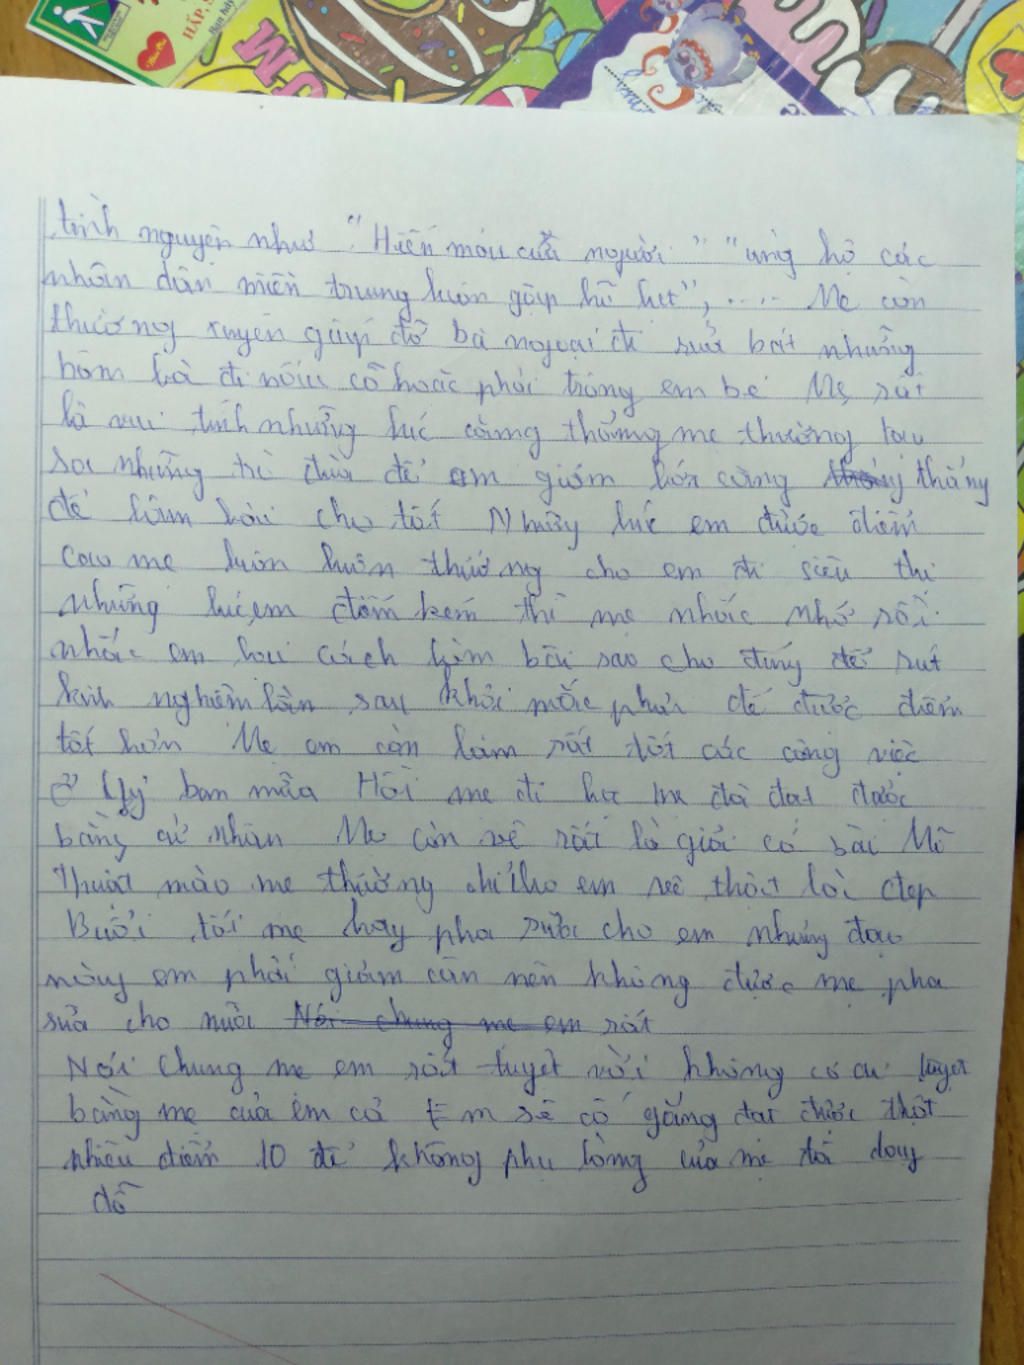 HẤP, S
Bạn hãy
tình nguyện như "Hiến máu cứu người" "ủng hộ các
nhân dân miền trung luôn gặp lũ lụt", .... Mẹ còn
thường xuyên giúp đỡ bà ngoại đi rửa bát những
hôm bà đi nấu cỗ hoặc phải trông em bé Mẹ rất
là vui tính những lúc căng thẳng mẹ thường tạo
ra những trò đùa để em giảm bớt căng thẳng
để làm bài cho tốt Những lúc em được điểm
cao mẹ luôn luôn thưởng cho em đi siêu thị
những lúc em điểm kém thì mẹ nhắc nhở rồi
nhắc em lại cách làm bài sao cho đúng để rút
kinh nghiệm lần sau khỏi mắc phải để được điểm
tốt hơn Mẹ em còn làm rất tốt các công việc
ở Uỷ ban nữa Hồi mẹ đi học mẹ đã đạt được
bằng cử nhân Mẹ còn vẽ rất là giỏi có bài Mĩ
Thuật nào mẹ thường chỉ cho em vẽ thật là đẹp
Buổi tối mẹ hay pha sữa cho em nhưng đạo
này em phải giảm cân nên không được mẹ pha
sữa cho nữa Nói chung mẹ em rất
Nói chung mẹ em rất tuyệt vời không có ai tuyệt
bằng mẹ của em cả Em sẽ cố gắng đạt được thật
nhiều điểm 10 để không phụ lòng của mẹ đã dạy
dỗ